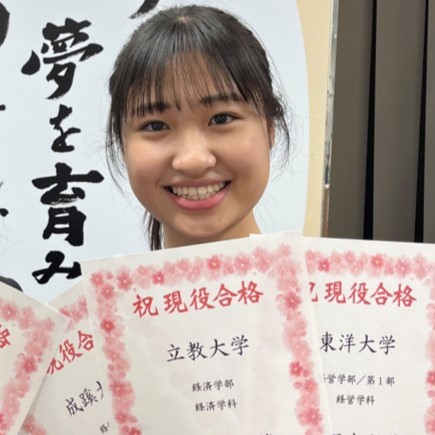 夢を
育み
祝 現役合格
立教大学
経済学部
経済学科
現役合格
東洋大学
営学部／第1部
経営学科
現役合
成蹊